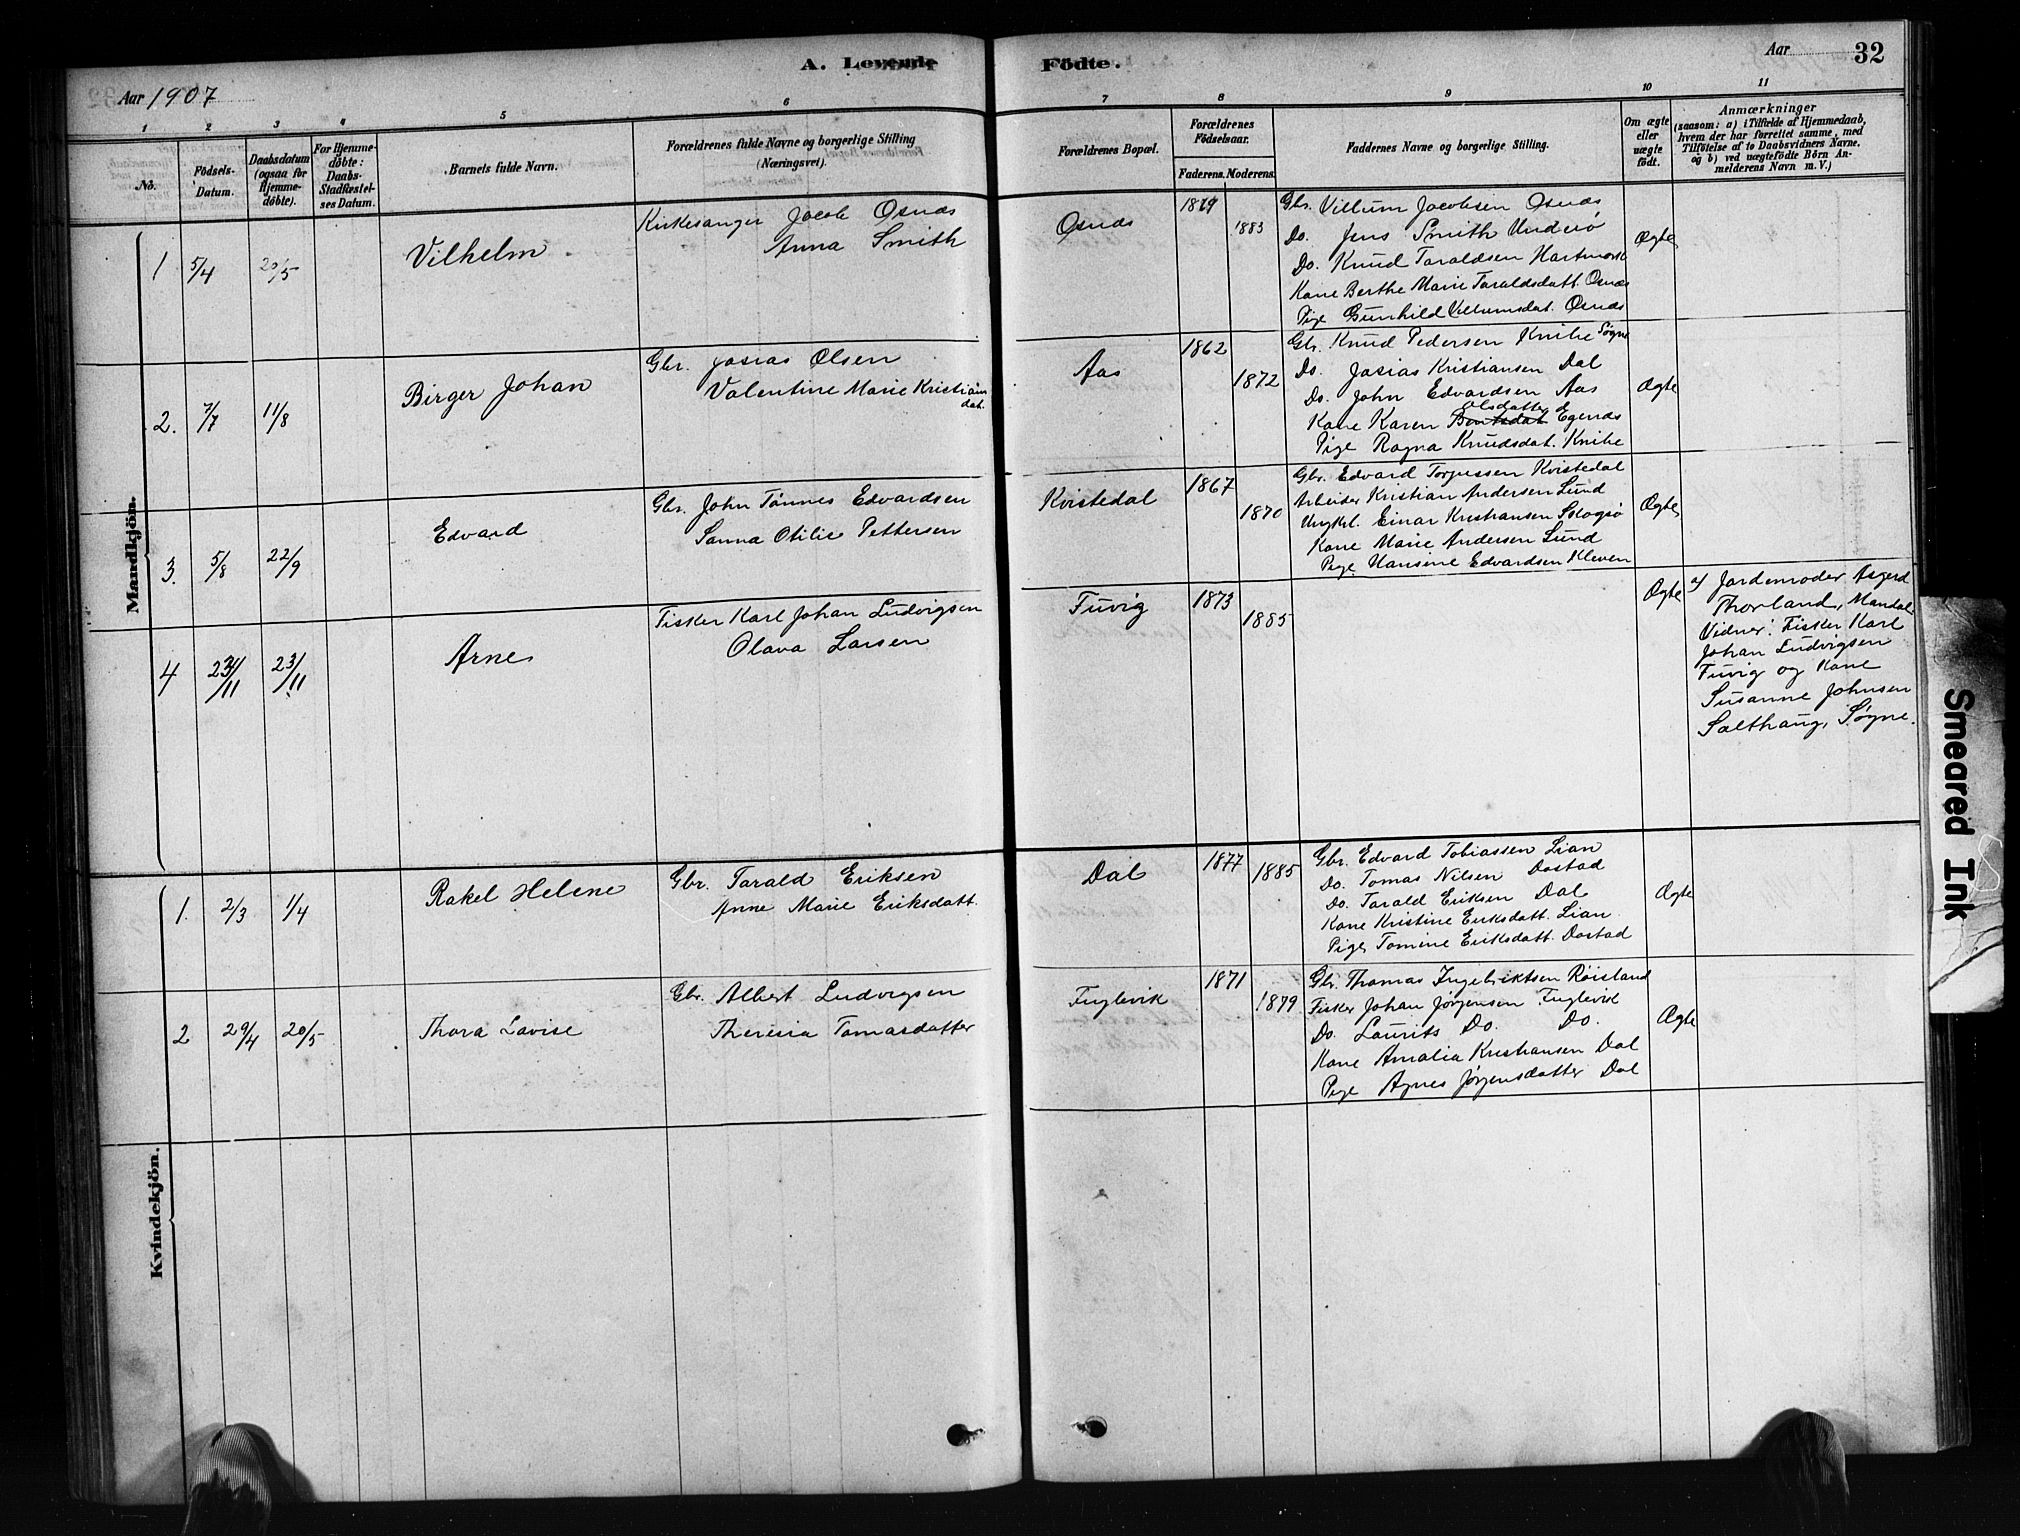 A. Levende Födte.
Aar 32
Aar 1907
1 2 3 4 5 6 7 8 9 10 11
No.
Födsels-Datum.
Daabsdatum (ogsaa for Hjemme-döbte).
For Hjemme-döbte: Daabs-Stadfæstel-ses Datum.
Barnets fulde Navn.
Forældrenes fulde Navne og borgerlige Stilling (Næringsvei).
Forældrenes Bopæl.
Forældrenes Födselsaar.
Faderens. Moderens.
Faddernes Navne og borgerlige Stilling.
Om ægte eller uægte födt.
Anmærkninger
(saasom: a) i Tilfælde af Hjemmedaab,
hvem der har forrettet samme, med
Tilföielse af to Daabsvidners Navne.
og b) ved uægtefödte Börn An-
melderens Navn m.V.)
Mandkjön.
1 5/4 20/5 Vilhelm
Kirkesanger Jacob Osnæs
Anna Smith
Osnæs 1879 1883
Gbr. Villum Jacobsen Osnæs
Do. Jens Smith Underø
Do. Knud Taraldsen Hartmark
Kone Berthe Marie Taraldsdatt. Osnæs
Pige Gunhild Villumsdat. Osnæs
Ægte
2. 7/7 11/8 Birger Johan
Gbr. Josias Olsen
Valentine Marie Kristians
dat.
Aas 1862 1872
Gbr. Knud Pedersen Knibe Søgne
Do. Josias Kristiansen Dal
Do. John Edvardsen Aas
Olsdatter
Kone Karen Egenæs
Pige Ragna Knudsdat. Knibe
Ægte
3. 5/8 22/9 Edvard
Gbr. John Tønnes Edvardsen
Sanna Otilie Pettersen
Kvistedal 1867 1870
Gbr. Edvard Torjussen Kvistedal
Arbeider Kristian Andersen Lund
Ungkl. Einar Kristiansen Skogsø
Kone Marie Andersen Lund
Pige Hansine Edvardsen Kleven
Ægte
4 23/11 23/11 Arne
Fisker Karl Johan Ludvigsen
Olava Larsen
Fuvig 1873 1885
Ægte
a) Jordemoder Asgerd
Thorland, Mandal.
Vidner: Fisker Karl
Johan Ludvigsen
Fuvig og Kone
Susanne Johnsen
Salthaug, Søgne.
Kvindekjön.
1. 2/3 1/4 Rakel Helene
Gbr. Tarald Eriksen
Anne Marie Eriksdatt.
Dal 1877 1885
Gbr. Edvard Tobiassen Lian
Do. Tomas Nilsen Dostad
Do. Tarald Eriksen Dal
Kone Kristine Eriksdatt. Lian
Pige Tomine Eriksdatt. Dostad
Ægte
2 29/4 20/5 Thora Lovise
Gbr. Albert Ludvigsen
Theresia Tomasdatter
Fuglevik 1871 1879
Gbr. Thomas Ingebriktsen Røisland
Fisker Johan Jørgensen Fuglevik
Do. Laurits Do. Do.
Kone Amalia Kristiansen Dal
Pige Agnes Jørgensdatter Dal
Ægte
Smeared Ink